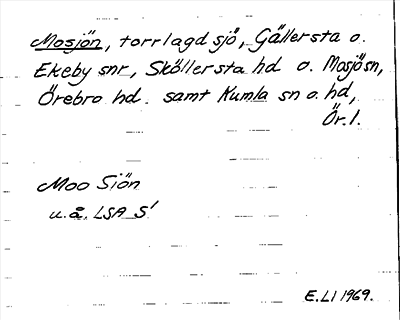 Mosjön, torrlagd sjö, Gällersta o.
Ekeby snr, Sköllersta hd o. Mosjö sn,
Örebro hd. samt Kumla sn o. hd,
Ör. l.
Moo Siön
u.å. LSA S1
E.LI 1969.